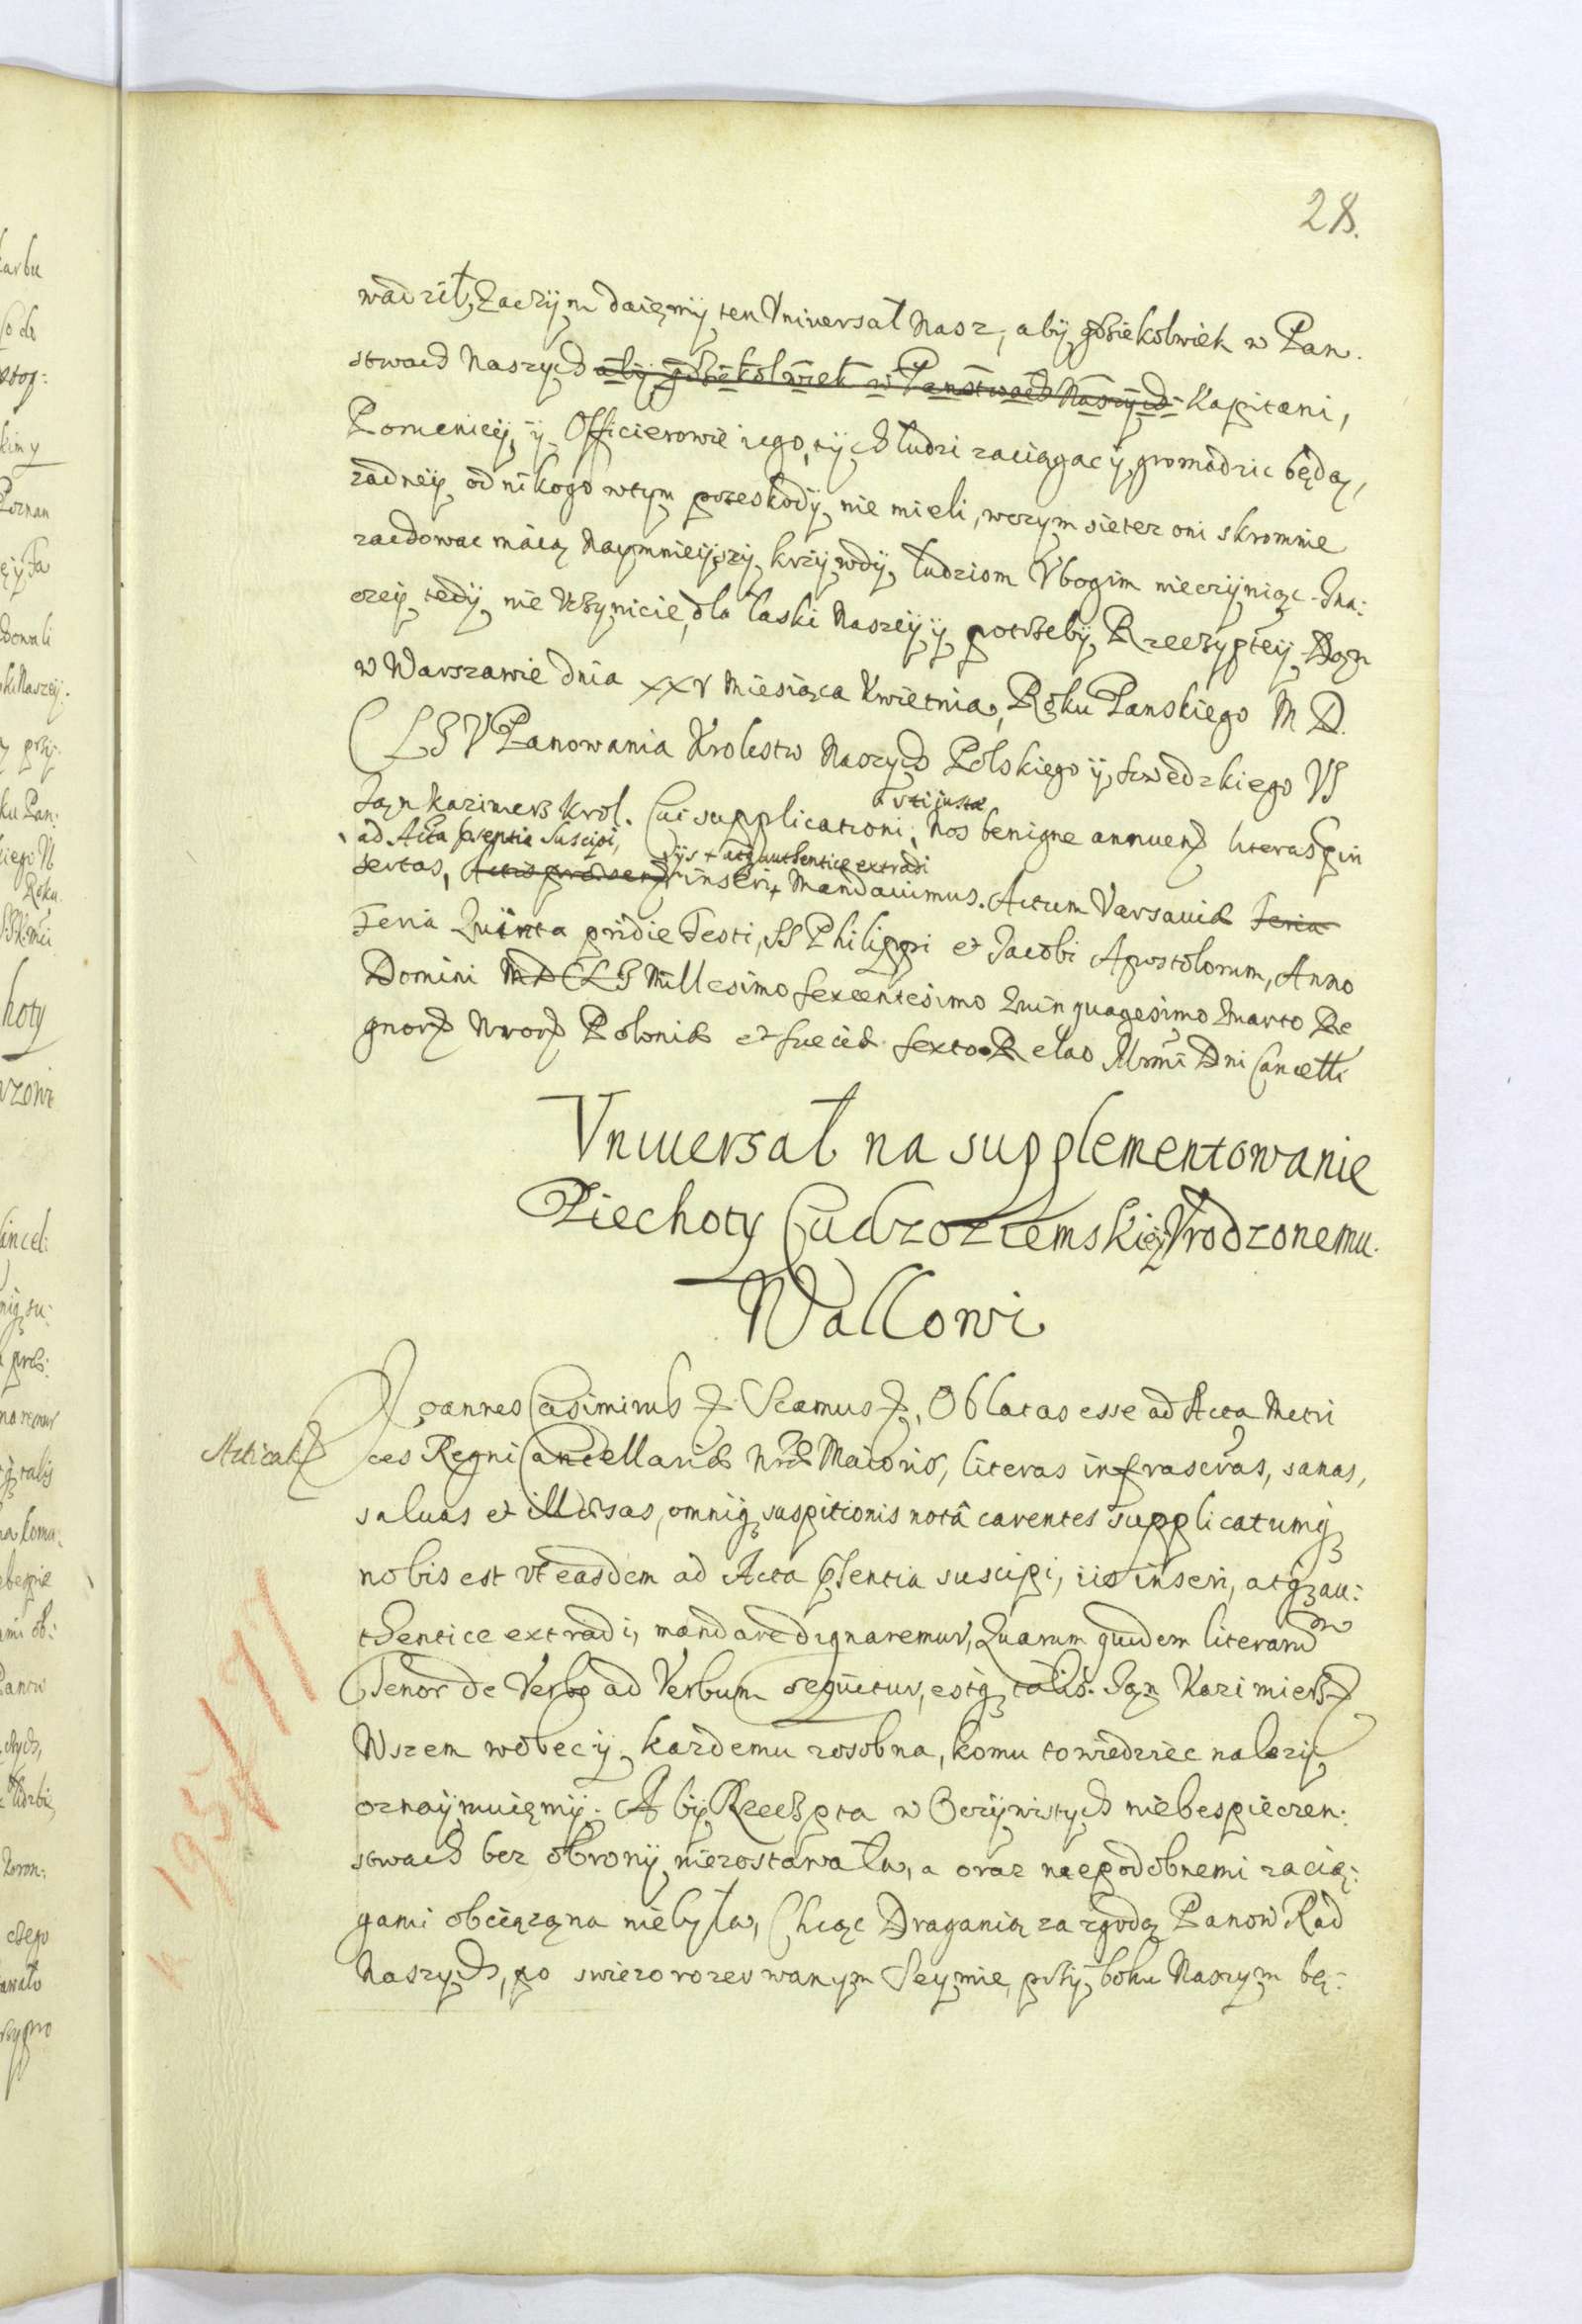 28.
wadził, Zaczym daięmy ten Vniuersał Nasz, aby gdziekolwiek w Pan.
stwach Naszych aby gdziekolwiek w Panstwach Naszych Kapitani,
Porucnicy, y Officierowie iego, tych ludzi zaciągac y gromadzic będą,
zadney od nikogo wtym przeskody nie mieli, wczym sietez oni skromnie
zachowac maią Naymnieyszy krzywdy ludziom Vbogim nieczyniąc. Jna:
czey tedy nie Vczynicie, dla łaski Naszey y potrzeby Rzeczyptey Dan
w Warszawie dnia XXV Miesiąca Kwietnia, Roku Panskiego M D
CLIV Panowania Krolestw Naszych Polskiego y Szwedzkiego VI
Jan Kazimierz Krol. Cui supplicationi, vti justæ Nos benigne annuen literas in
ad Acta præsentia Suscipi, iis atq authentice extradi
sertas, Actis præsen inseri Mandauimus. Actum Varsauiæ Feria
Feria Quinta pridie Festi, SS Philippi et Jacobi Apostolorum, Anno
Domini MDCLI Millesimo Sexcentesimo Quinquagesimo Quarto Re
gnor Nror Poloniæ et Sueciæ Sexto Relao Illrmi Dni Cancelli
Vniuersał na supplementowanie
Piechoty Cudzoziemskiey Vrodzonemu.
Wallowi
Joannes Casimirus Scamus, Oblatas esse ad Acta Metri
ces Regni Cancellariæ Nræ Maioris, literas infrascras, sanas,
saluas et illæsas, omniq suspitionis notâ carentes supplicatumq
nobis est vt easdem ad Acta psentia suscipi, iis inseri, atq au:
thentice extradi, mandare dignaremur, Quarum quidem literarum
Tenor de Verbo ad Verbum sequitur, estq talis. Jan Kazimierz
Wszem wobec y kazdemu zosobna, komu to wiedziec nalezy
oznaymuięmy. A by Rzeczpta w Oczywistych niebespieczen:
stwach bez obrony niezostawała, a oraz niepodobnemi zacią:
gami obciązona niebyła, Chcąc Dragania za zgodą Panow Rad
Naszych, po swiezo rozerwanym Seymie, przy boku Naszym bę: